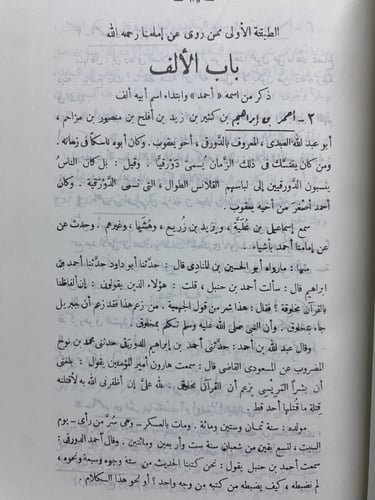 الطبقة الأولى ممن روى عن إمامنا رحمه الله
باب الألف
ذكر من اسمه «أحمد» وابتداء اسم أبيه ألف
٢ – أحمد بن إبراهيم بن كثير بن زيد بن أفلح بن منصور بن مزاحم،
أبو عبد الله العبدى، المعروف بالدورقى، أخو يعقوب. وكان أبوه ناسكا فى زمانه.
ومن كان يتنسك فى ذلك الزمان يُسمى دَوْرقيًّا. وقيل: بل كان الناسُ
ينسبون الدورقيين إلى لباسهم القلانس الطوال، التى تسمى الدورقية. وكان
أحمد أصغر من أخيه يعقوب.
سمع إسماعيل بن عُليَّة، ويزيد بن زُريع، وهُشَيما، وغيرهم. وحدث عن
إمامنا أحمد بأشياء.
منها: مارواه أبو الحسين بن المنادى قال: حدَّثنا أبو داود حدَّثنا أحمد بن
إبراهيم قال: سألت أحمد بن حنبل، قلت: هؤلاء الذين يقولون: إن ألفاظنا
بالقرآن مخلوقة؟ فقال: هذا شر من قول الجهمية. من زعم هذا فقد زعم أن جبريل
جاء بمخلوق. وأن النبى صلى الله عليه وسلم تكلم بمخلوق.
وقال عبد الله بن أحمد: حدَّثنى أحمد بن إبراهيم الدورقى حدثنى محمد بن نوح
المضروب عن المسعودى القاضى قال: سمعت هارون أمير المؤمنين يقول: بلغنى
أن بشرًا المريسى يزعم أن القرآن مخلوق. لله علىَّ إن أظفرنى الله به لأقتلنه
قتلة ما قتلتها أحد قط.
مولده: سنة ثمان وستين ومائة. ومات بالعسكر – وهى سُرَّ من رأى – يوم
السبت، لتسع بقين من شعبان سنة ست وأربعين ومائتين. وقال أحمد الدورقى:
سمعت أحمد بن حنبل يقول: نحن كتبنا الحديث من ستة وجوه وسبعة ونحوه،
لم نضبطه، كيف يضبطه من كتبه من وجه واحد؟ أو نحو هذا الكلام.